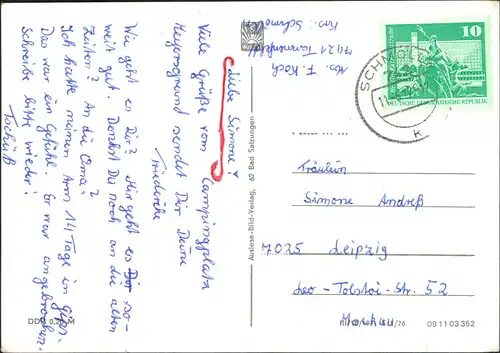 Liebe Simone!
Viele Grüße vom Campingplatz
Meyersgrund sendet Dir Deine
Friederike
Wie geht es Dir? Mir geht es so-
weit gut. Denkst Du noch an die alten
Zeiten? An die Oma?
Ich hatte meinen Arm 14 Tage in Gips.
Das war ein Gefühl. Er war angebrochen.
Schreibe bitte wieder!
Tschüß
Abs. F. Koch
7421
DDR
Auslese-Bild-Verlag, 62 Bad Salzungen
10
DEUTSCHE DEMOKRATISCHE REPUBLIK
Fräulein
Simone Andreß
7025 Leipzig
Leo-Tolstoi-Str. 52
09 11 03 352